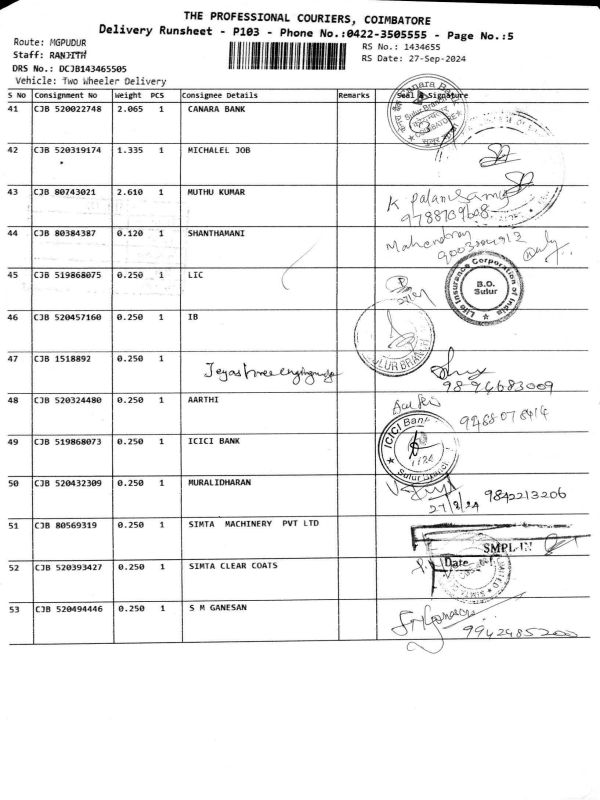 THE PROFESSIONAL COURIERS, COIMBATORE
Delivery Runsheet - P103 - Phone No.:0422-3505555 - Page No.:5
Route: MGPUDUR
RS No.: 1434655
Staff: RANJITH
RS Date: 27-Sep-2024
DRS No.: DCJB143465505
Vehicle: Two Wheeler Delivery
S No Consignment No Weight PCS Consignee Details Remarks Seal & Signature
41 CJB 520022748 2.065 1 CANARA BANK
42 CJB 520319174 1.335 1 MICHALEL JOB
43 CJB 80743021 2.610 1 MUTHU KUMAR
K Palanisamy
9788709608
44 CJB 80384387 0.120 1 SHANTHAMANI
Mahendran
45 CJB 519868075 0.250 1 LIC
Life Insurance Corporation of India
B.O.
Sulur
46 CJB 520457160 0.250 1 IB
SULUR BRANCH
47 CJB 1518892 0.250 1
9894683009
48 CJB 520324480 0.250 1 AARTHI
9488078414
49 CJB 519868073 0.250 1 ICICI BANK
ICICI Bank
Sulur Branch
50 CJB 520432309 0.250 1 MURALIDHARAN
27/9/24 9842213206
51 CJB 80569319 0.250 1 SIMTA MACHINERY PVT LTD
SMPL-IN
52 CJB 520393427 0.250 1 SIMTA CLEAR COATS
Date
53 CJB 520494446 0.250 1 S M GANESAN
9942485200